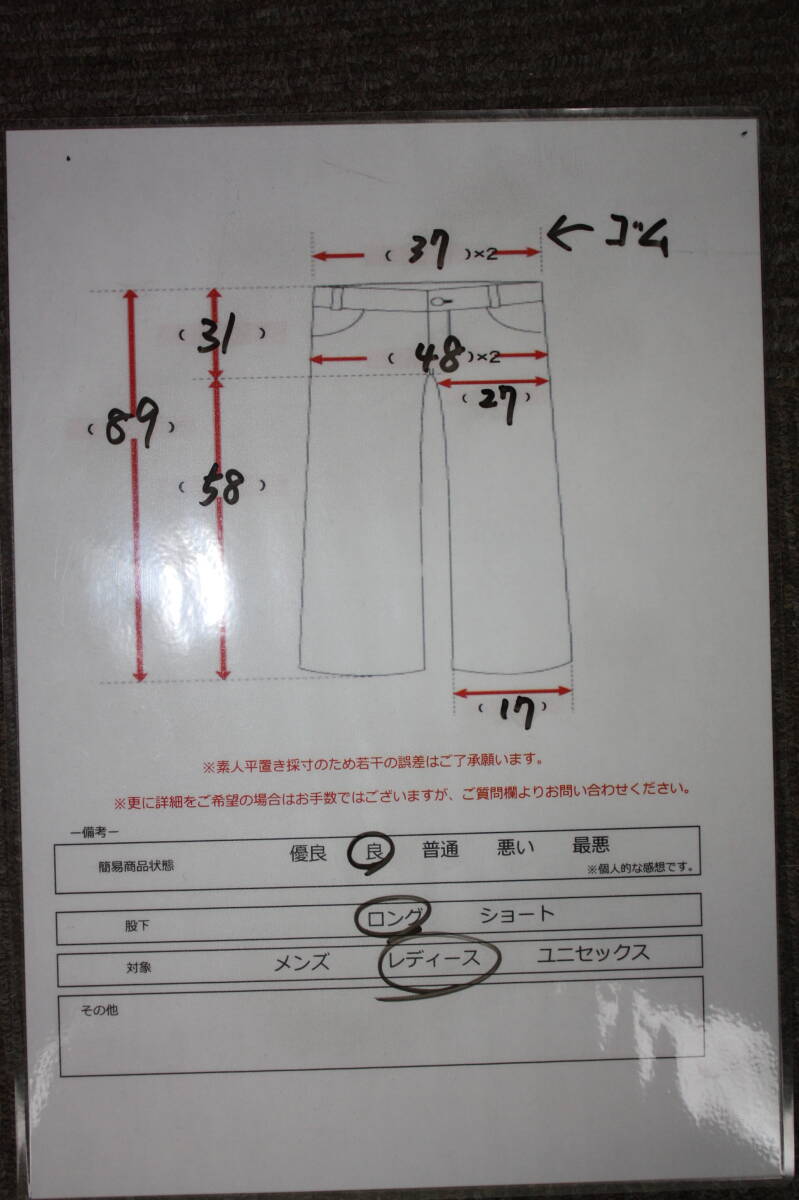 (37)×2 ←ゴム
(31)
(48)×2
(27)
(89)
(58)
(17)
※素人平置き採寸のため若干の誤差はご了承願います。
※更に詳細をご希望の場合はお手数ではございますが、ご質問欄よりお問い合わせください。
ー備考ー
簡易商品状態 優良 良 普通 悪い 最悪
※個人的な感想です。
股下 ロング ショート
対象 メンズ レディース ユニセックス
その他